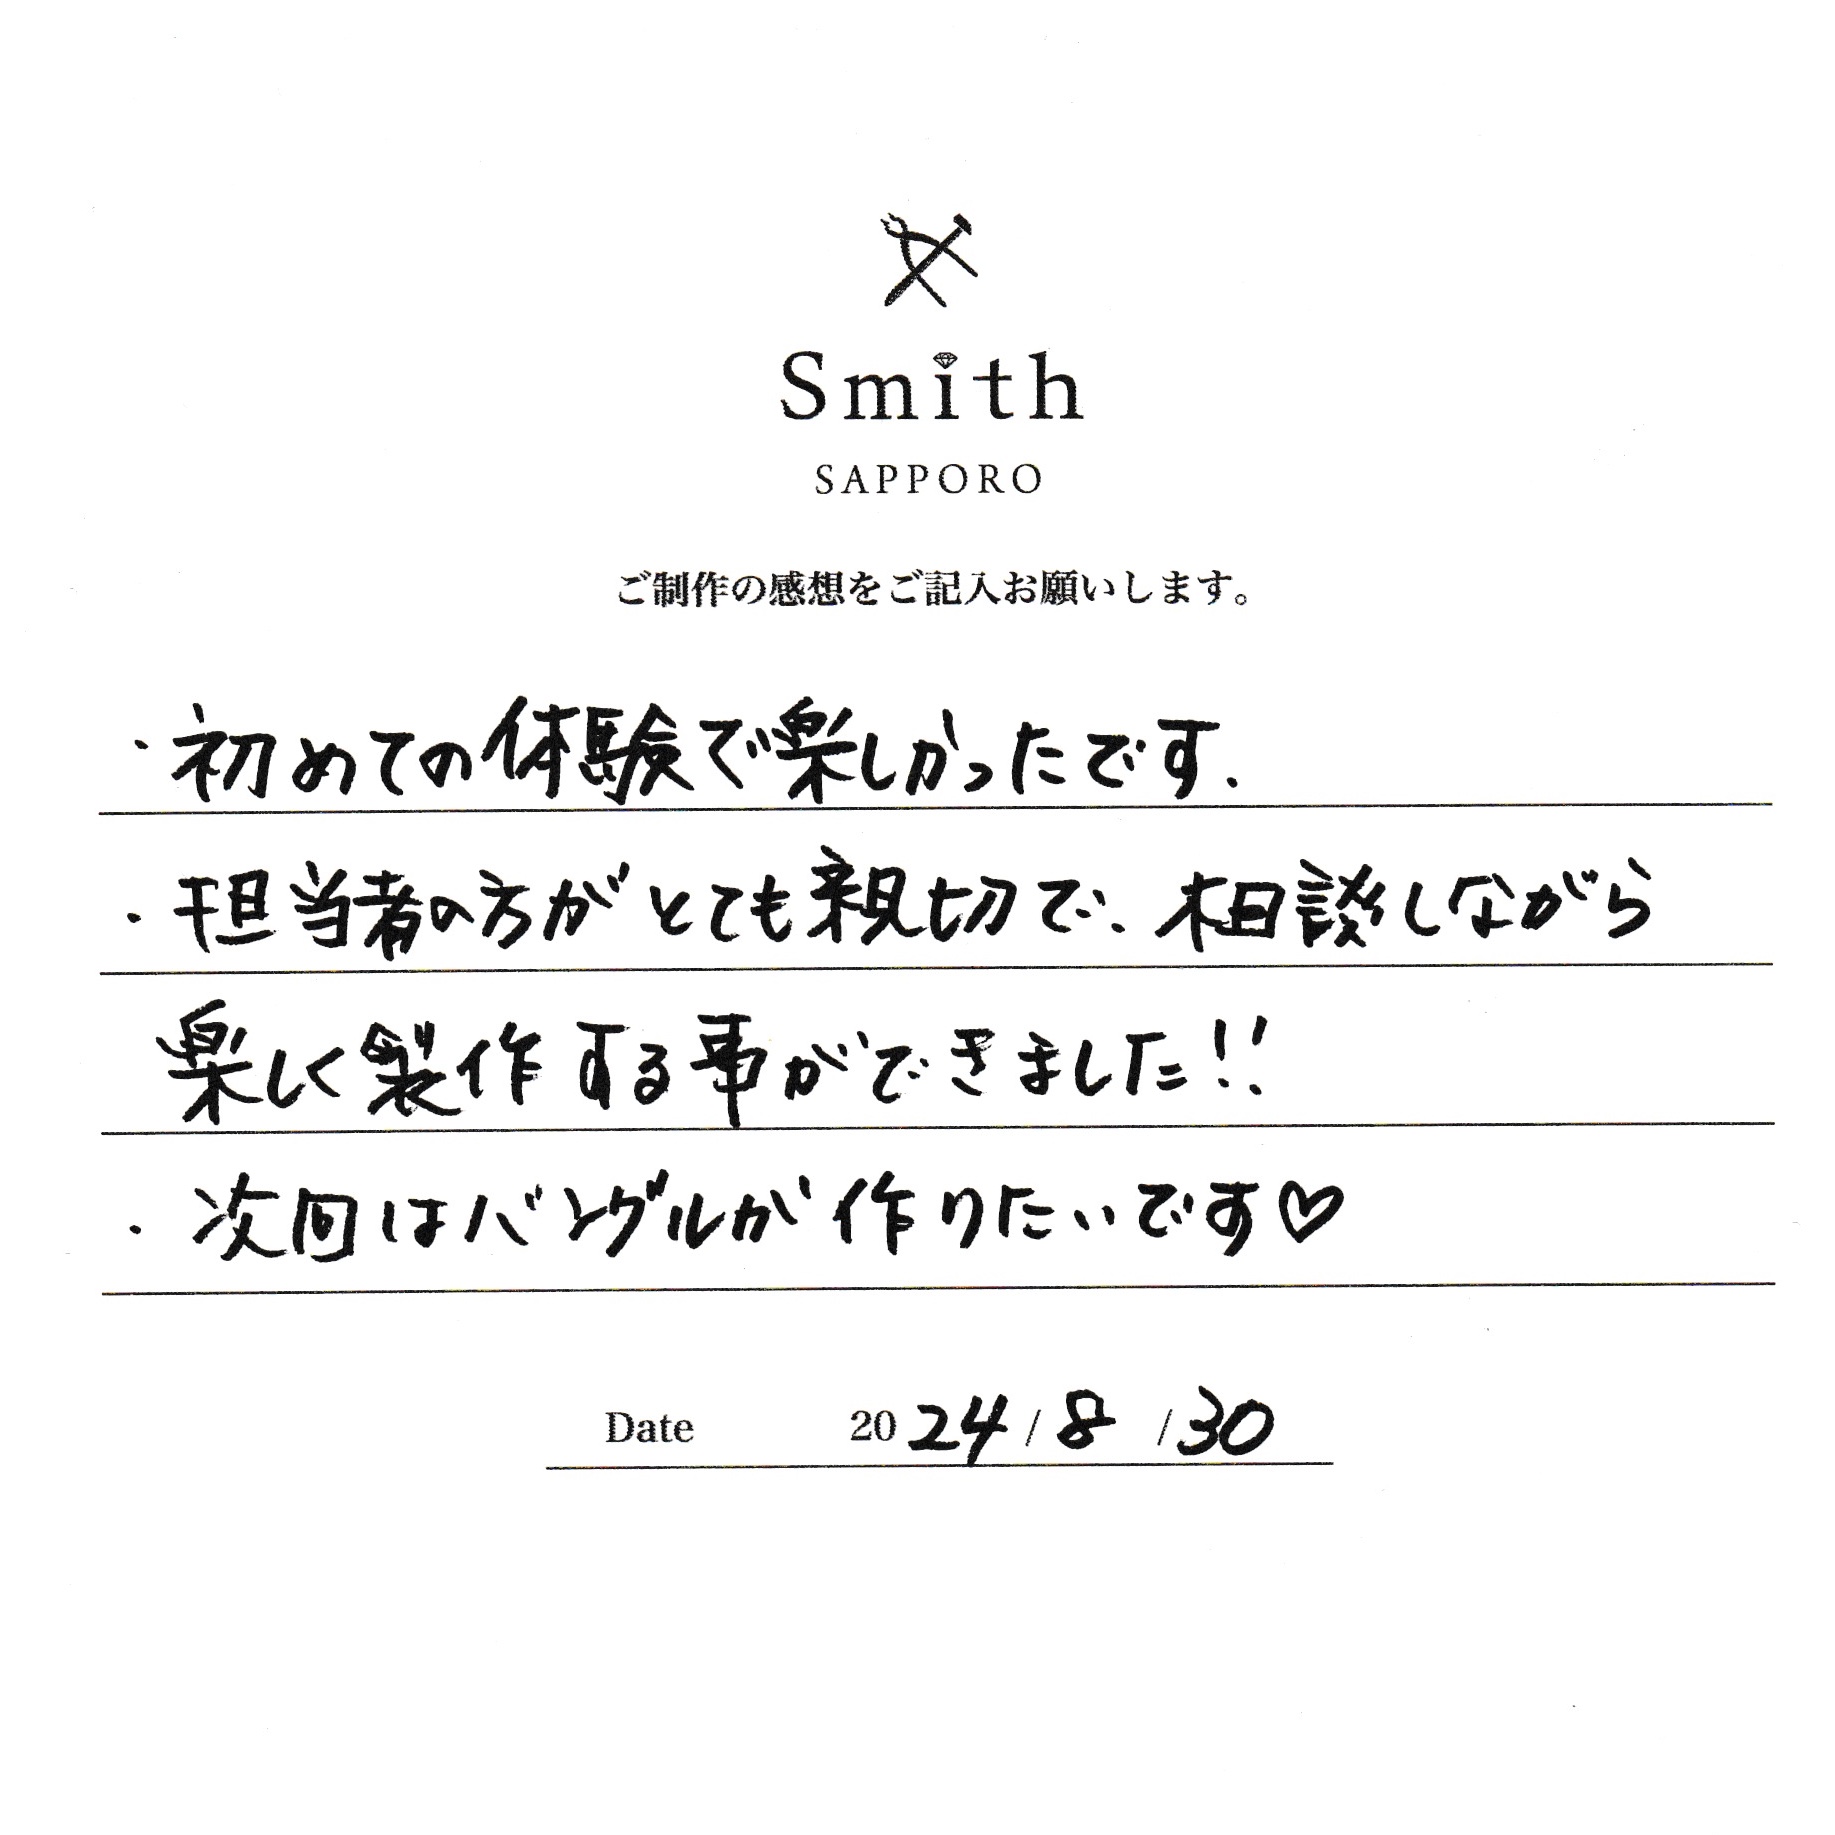 Smith
SAPPORO
ご制作の感想をご記入お願いします。
・初めての体験で楽しかったです.
・担当者の方がとても親切で、相談しながら
楽しく製作する事ができました!!
・次回はバングルが作りたいです♡
Date 2024/8/30